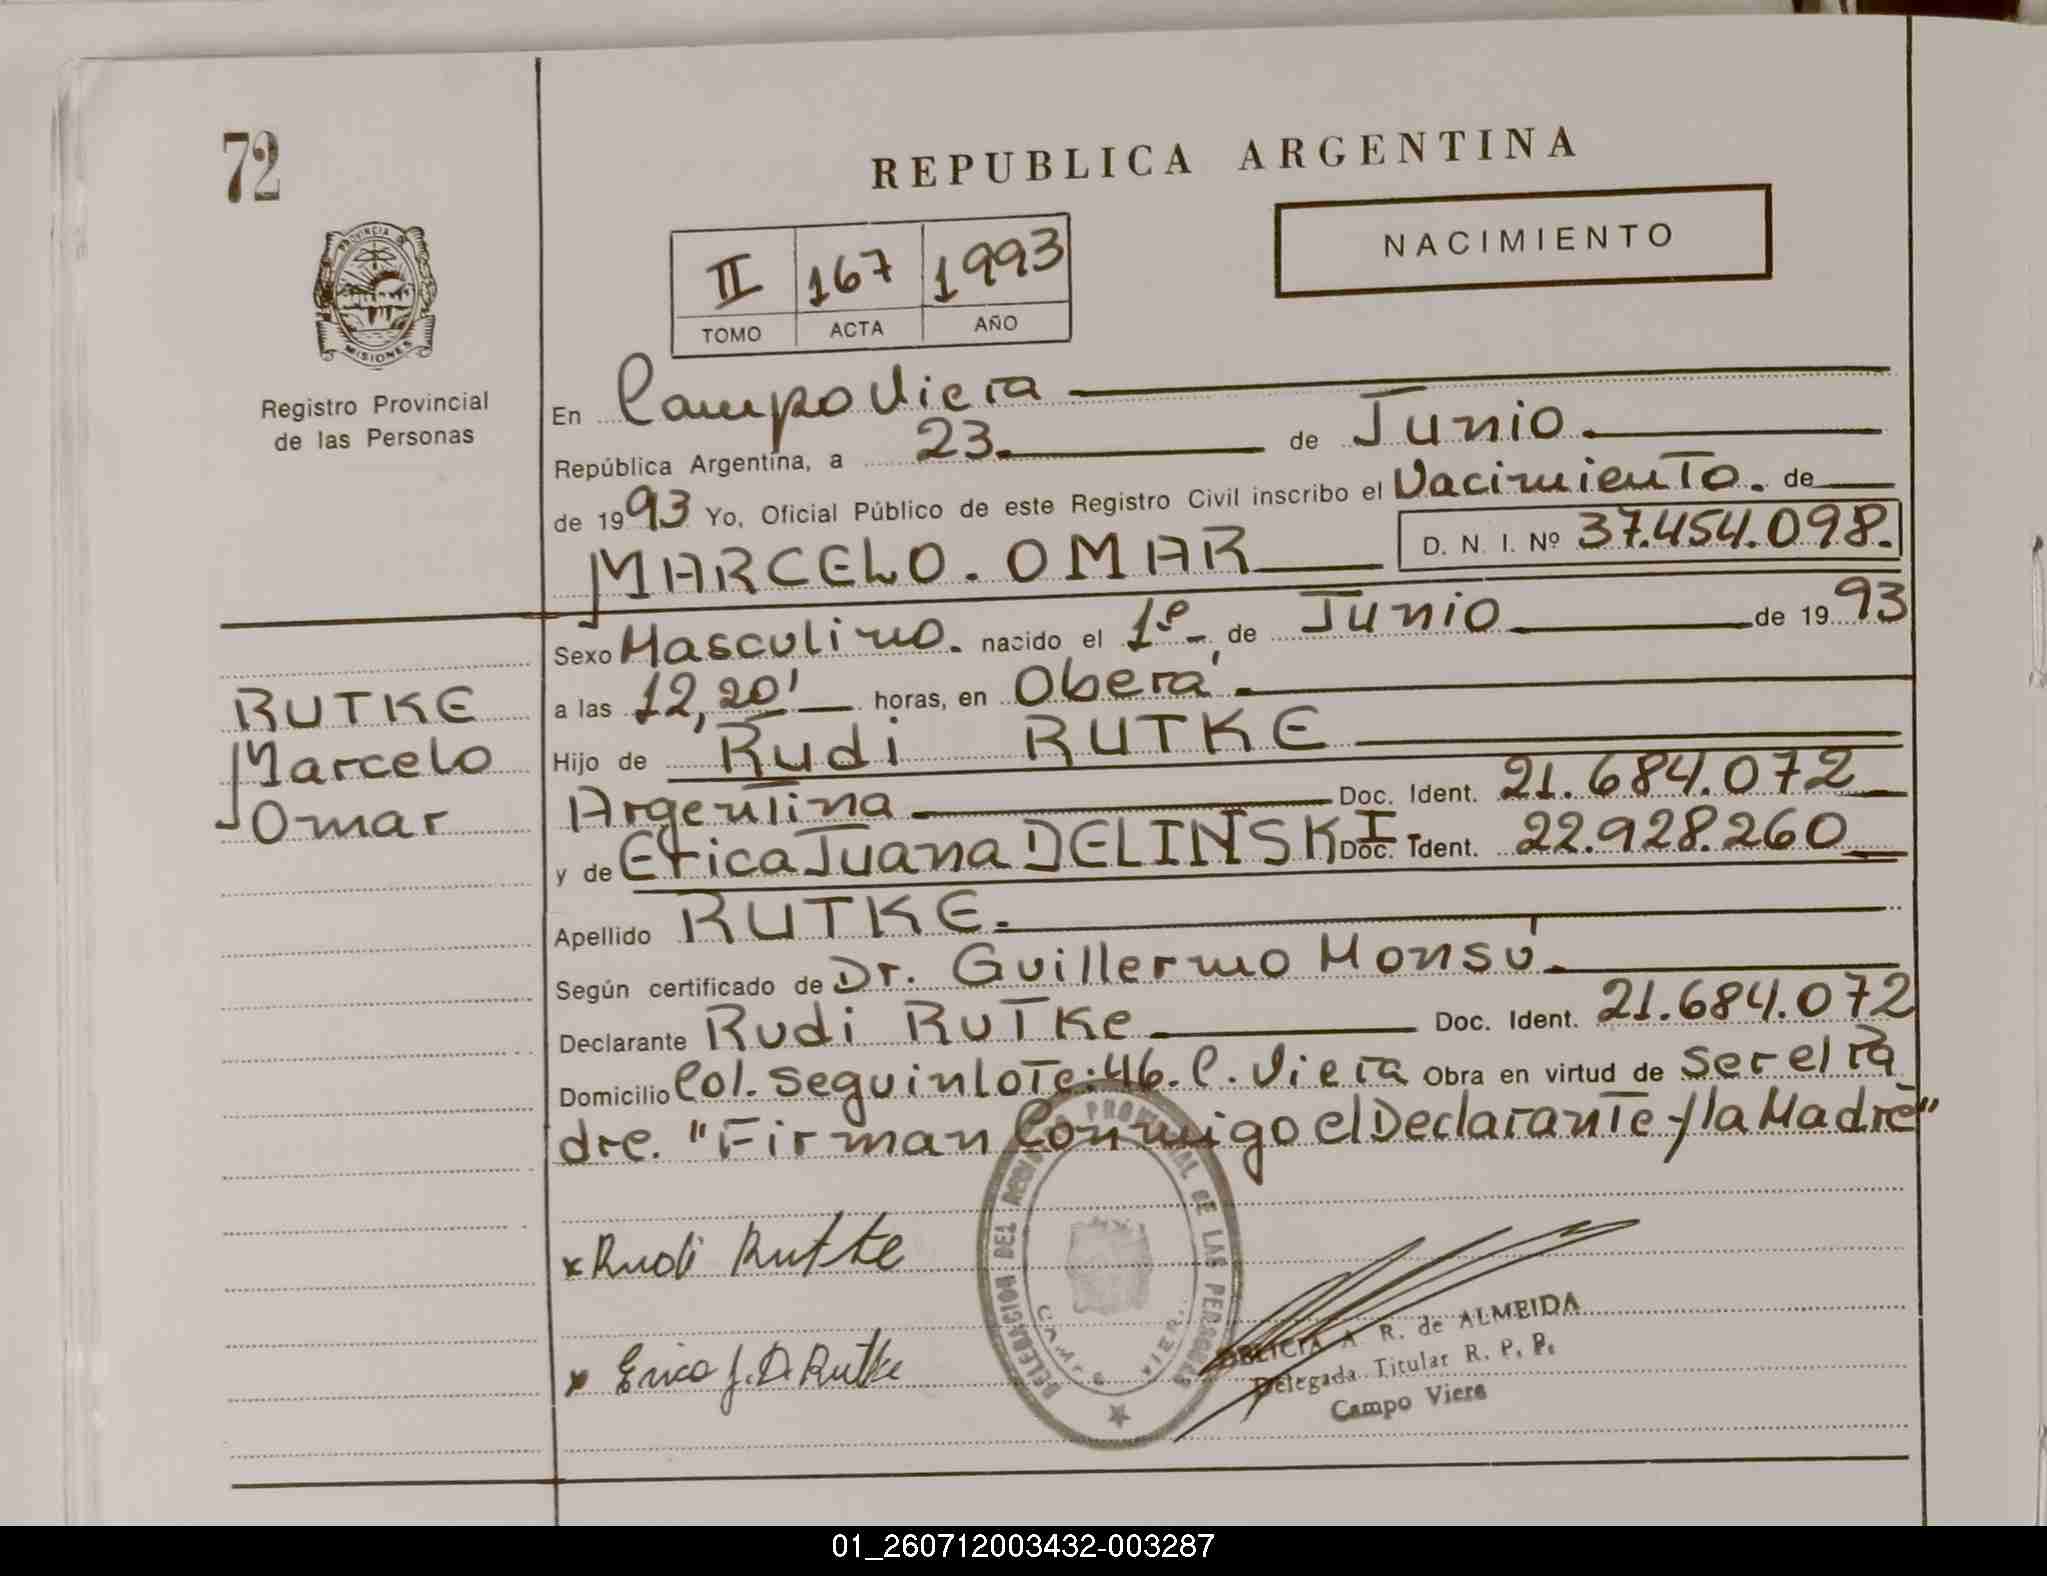 72
REPUBLICA ARGENTINA
NACIMIENTO
II 167 1993
TOMO ACTA AÑO
PROVINCIA DE
MISIONES
Registro Provincial
de las Personas
En Campo Viera
República Argentina, a 23. de Junio.
de 1993 Yo, Oficial Público de este Registro Civil inscribo el Nacimiento. de
MARCELO. OMAR D. N. I. Nº 37.454.098.
Sexo Masculino. nacido el 1º de Junio de 1993
a las 12,20' horas, en Oberá.
Hijo de Rudi RUTKE
Argentina Doc. Ident. 21.684.072
y de Erica Juana DELINSKI Doc. Ident. 22.928.260
Apellido RUTKE.
Según certificado de Dr. Guillermo Monsú.
Declarante Rudi RUTKe Doc. Ident. 21.684.072
Domicilio Col. Seguin lote: 46. C. Viera Obra en virtud de ser el pa
dre. "Firman Conmigo el Declarante y la Madre"
RUTKE
Marcelo
Omar
x Rudi Rutke
x Erica J. D. Rutke
DELEGACION DEL REGISTRO PROVINCIAL DE LAS PERSONAS
CAMPO VIERA
A R. de ALMEIDA
Delegada Titular R. P. P.
Campo Viera
01_260712003432-003287